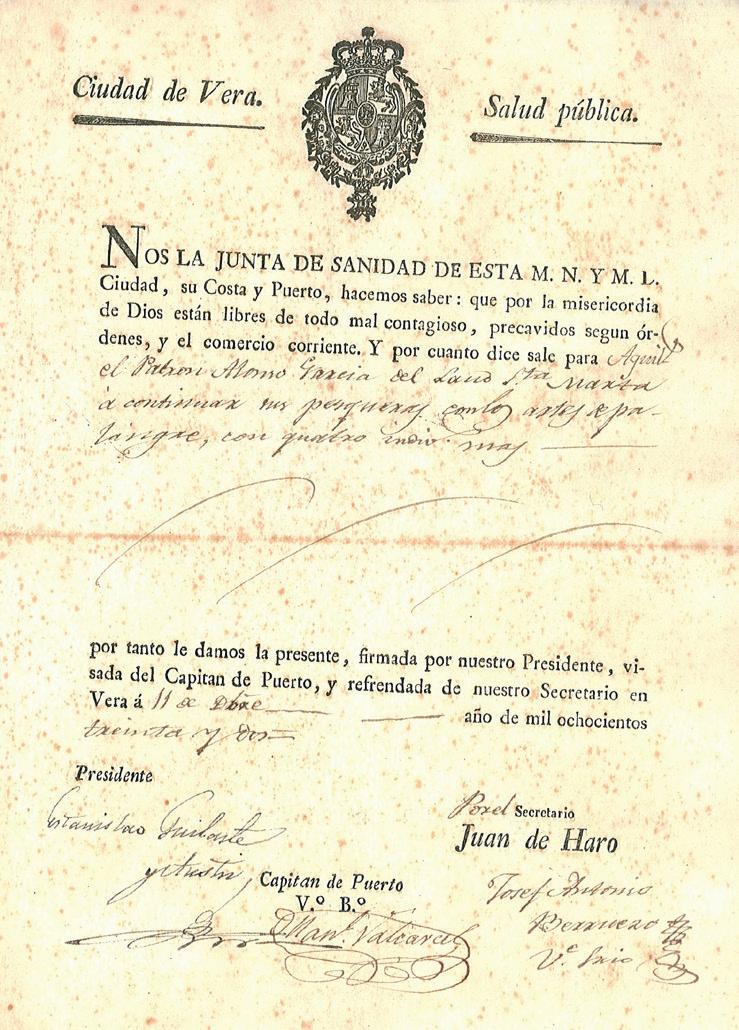 Ciudad de Vera.
Salud pública.
NOS LA JUNTA DE SANIDAD DE ESTA M. N. Y M. L.
Ciudad, su Costa y Puerto, hacemos saber: que por la misericordia
de Dios están libres de todo mal contagioso, precavidos segun ór-
denes, y el comercio corriente. Y por cuanto dice sale para Aguil.s
el Patron Alonso Garcia del Laud Sta Marta
à continuar sus pesqueras con los artes de pa-
langre, con quatro indiv. mas
por tanto le damos la presente, firmada por nuestro Presidente, vi-
sada del Capitan de Puerto, y refrendada de nuestro Secretario en
Vera á 11 de Dbre año de mil ochocientos
treinta y dos
Presidente
Estanislao
Por el Secretario
Juan de Haro
Capitan de Puerto
V.º B.º
Man.l Valcarcel
Josef Antonio
Berruezo